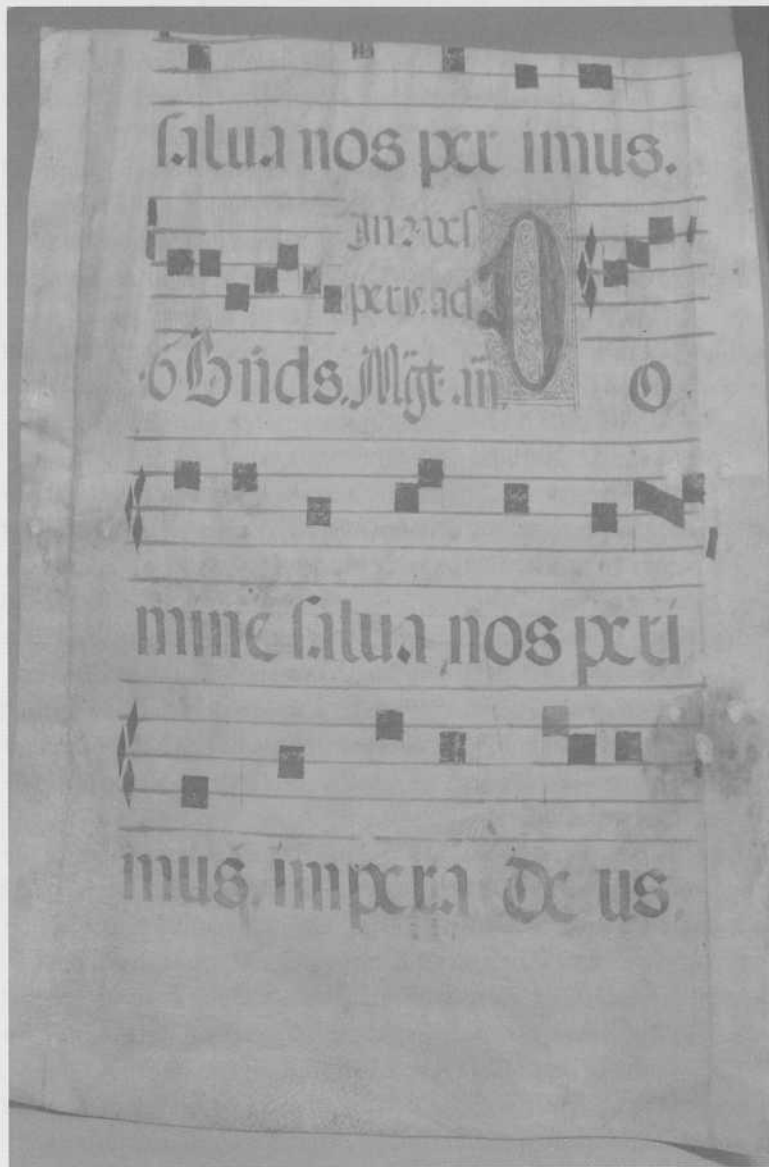 salua nos per imus.
In 2. ves
peris. ad
.6 Bñds. Mg̃t. añ. O O
mine salua nos peri
mus. impera De us.